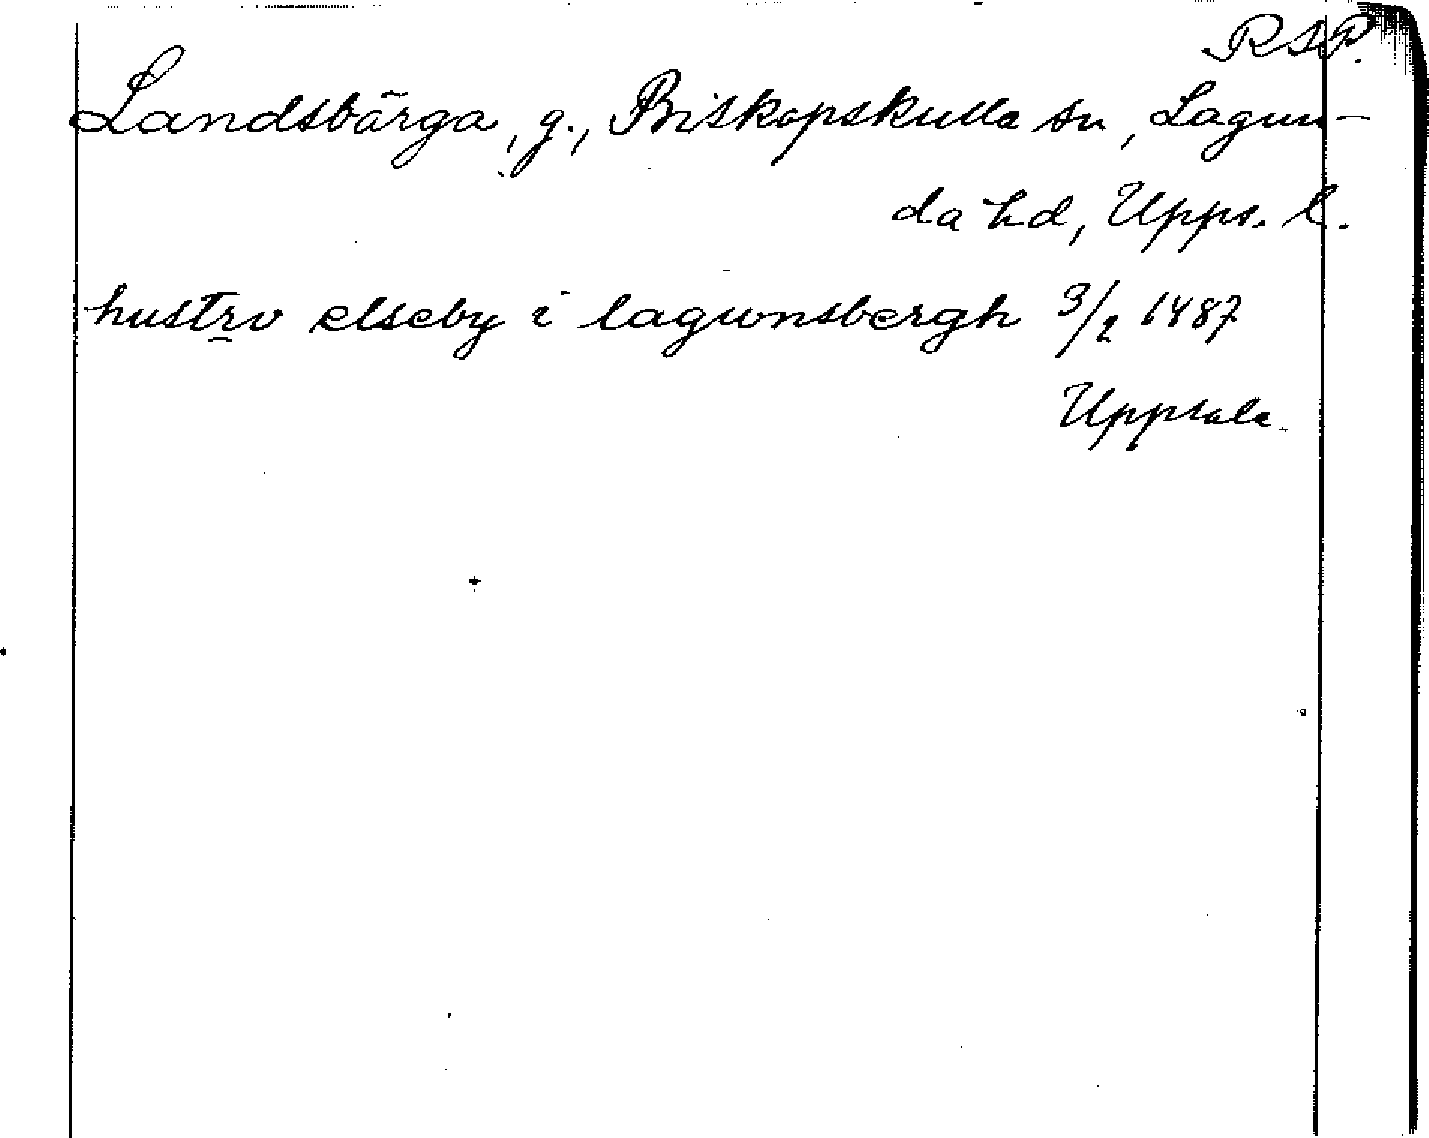 RSP.
Landsbärga, g., Biskopskulla sn, Lagun-
da hd, Upps. l.
hustrv elseby i lagwnsbergh 3/2 1487
Uppsala.